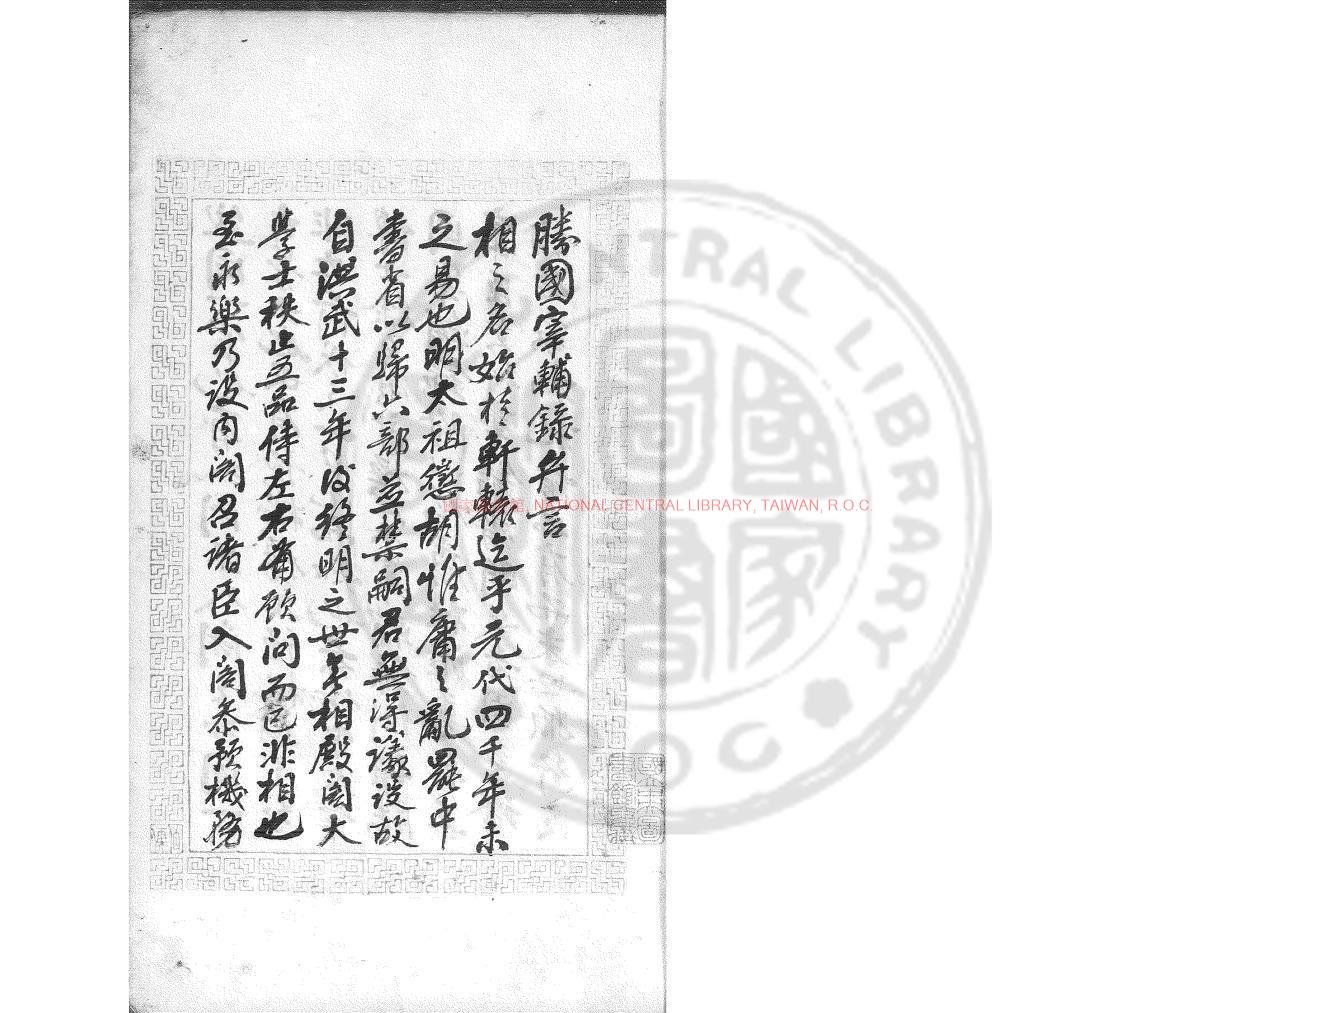 勝國宰輔錄弁言
相之名始於軒轅迄乎元代四千年未
之易也明太祖懲胡惟庸之亂罷中
書省以歸六部並禁嗣君無得議設故
自洪武十三年後終明之世無相殿閣大
學士秩止五品侍左右備顧問而已非相也
至永樂乃設內閣召諸臣入閣參預機務
國家圖書館, NATIONAL CENTRAL LIBRARY, TAIWAN, R.O.C.
CENTRAL LIBRARY
R.O.C.